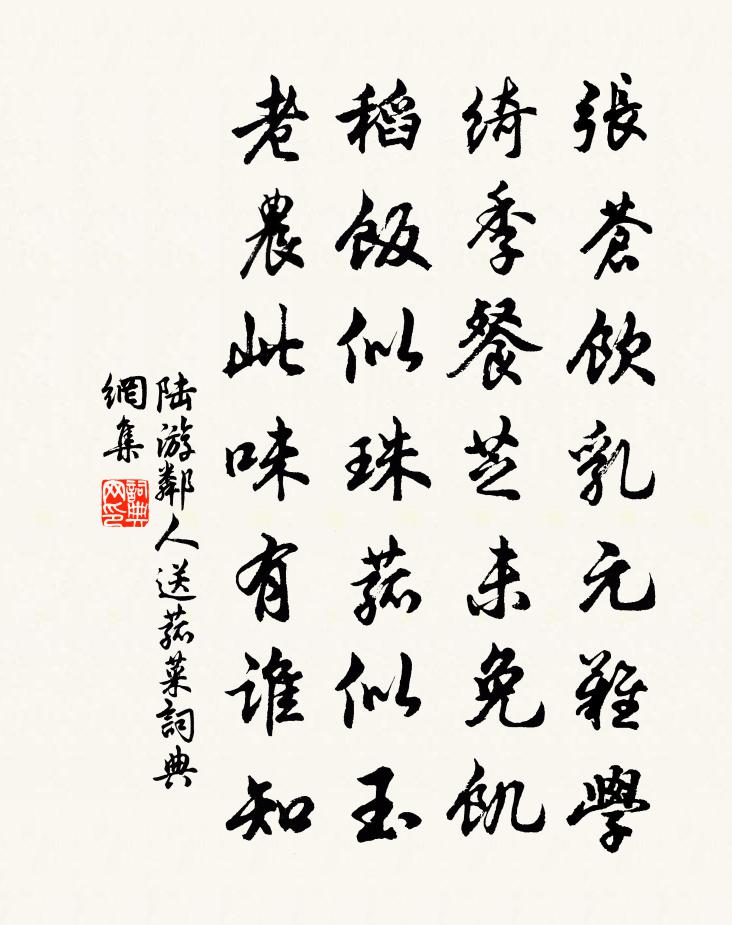 張蒼飲乳元難學
綺季餐芝未免飢
稻飯似珠菰似玉
老農此味有誰知
陸游鄰人送菰菜詞典
網集
詞典網印